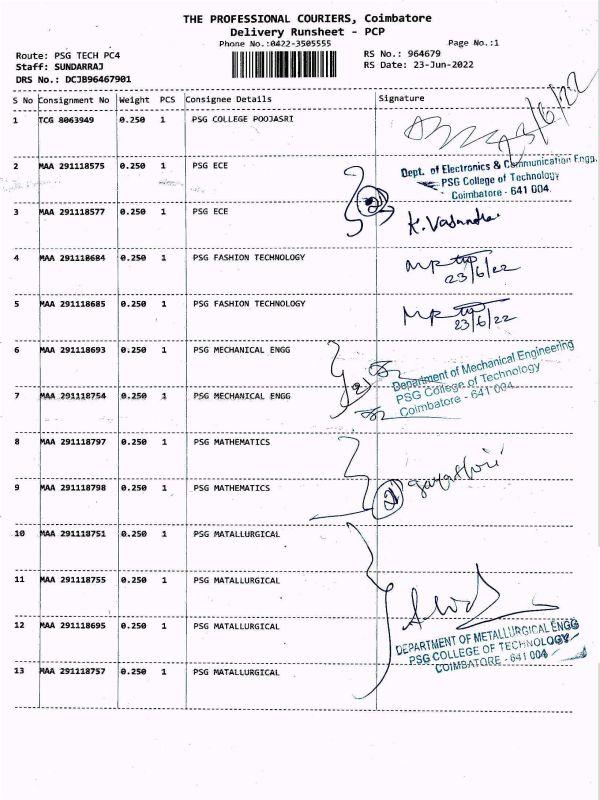 THE PROFESSIONAL COURIERS, Coimbatore
Delivery Runsheet - PCP
Phone No.:0422-3505555 Page No.:1
Route: PSG TECH PC4 RS No.: 964679
Staff: SUNDARRAJ RS Date: 23-Jun-2022
DRS No.: DCJB96467901
S No Consignment No Weight PCS Consignee Details Signature
1 TCG 8063949 0.250 1 PSG COLLEGE POOJASRI
23/6/22
2 MAA 291118575 0.250 1 PSG ECE
Dept. of Electronics & Communication Engg.
PSG College of Technology
Coimbatore - 641 004.
2
3 MAA 291118577 0.250 1 PSG ECE K. Vasandha
4 MAA 291118684 0.250 1 PSG FASHION TECHNOLOGY
23/6/22
5 MAA 291118685 0.250 1 PSG FASHION TECHNOLOGY
23/6/22
6 MAA 291118693 0.250 1 PSG MECHANICAL ENGG
Department of Mechanical Engineering
PSG College of Technology
Coimbatore - 641 004.
2
7 MAA 291118754 0.250 1 PSG MECHANICAL ENGG
8 MAA 291118797 0.250 1 PSG MATHEMATICS
9 MAA 291118798 0.250 1 PSG MATHEMATICS
2
10 MAA 291118751 0.250 1 PSG MATALLURGICAL
11 MAA 291118755 0.250 1 PSG MATALLURGICAL
12 MAA 291118695 0.250 1 PSG MATALLURGICAL
DEPARTMENT OF METALLURGICAL ENGG
PSG COLLEGE OF TECHNOLOGY
COIMBATORE - 641 004
13 MAA 291118757 0.250 1 PSG MATALLURGICAL